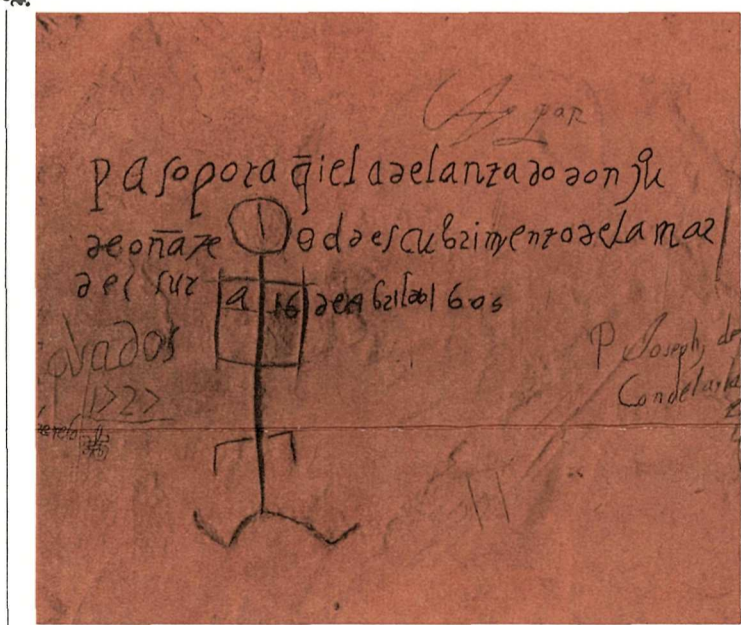 pasopora q̄iel adelantado don jů
de oñate l descubrimyento dela mar
del sur a 16 de Abril del 1605
ovados
1727
P Joseph de
Condelaria